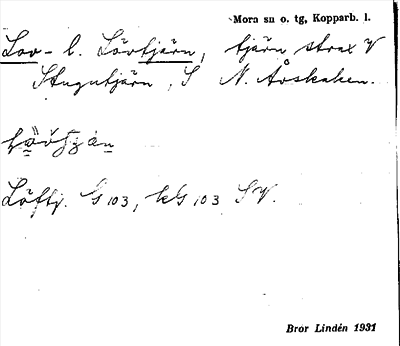 Mora sn o. tg, Kopparb. l.
Lov- l. Lövtjärn, tjärn strax V
Stugutjärn, S N. Åvskaken.
Löftj. G 103, kG 103 SV.
Bror Lindén 1931